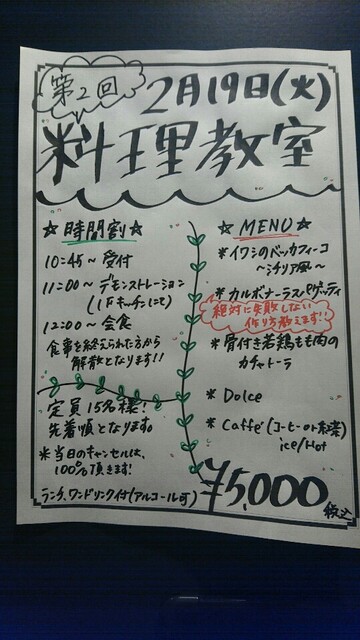 第2回
2月19日(火)
料理教室
☆時間割☆
10:45~受付
11:00~デモンストレーション
(1Fキッチンにて)
12:00~会食
食事を終えられた方から
解散となります!!
定員15名様!
先着順となります。
*当日のキャンセルは、
100%頂きます!
ランチ、ワンドリンク付(アルコール可)
☆MENU☆
*イワシのベッカフィーコ
~シチリア風~
*カルボナーラスパゲッティ
絶対に失敗しない
作り方教えます!!
*骨付き若鶏もも肉の
カチャトーラ
*Dolce
*Caffé(コーヒーor紅茶)
ice/Hot
¥5,000
税込